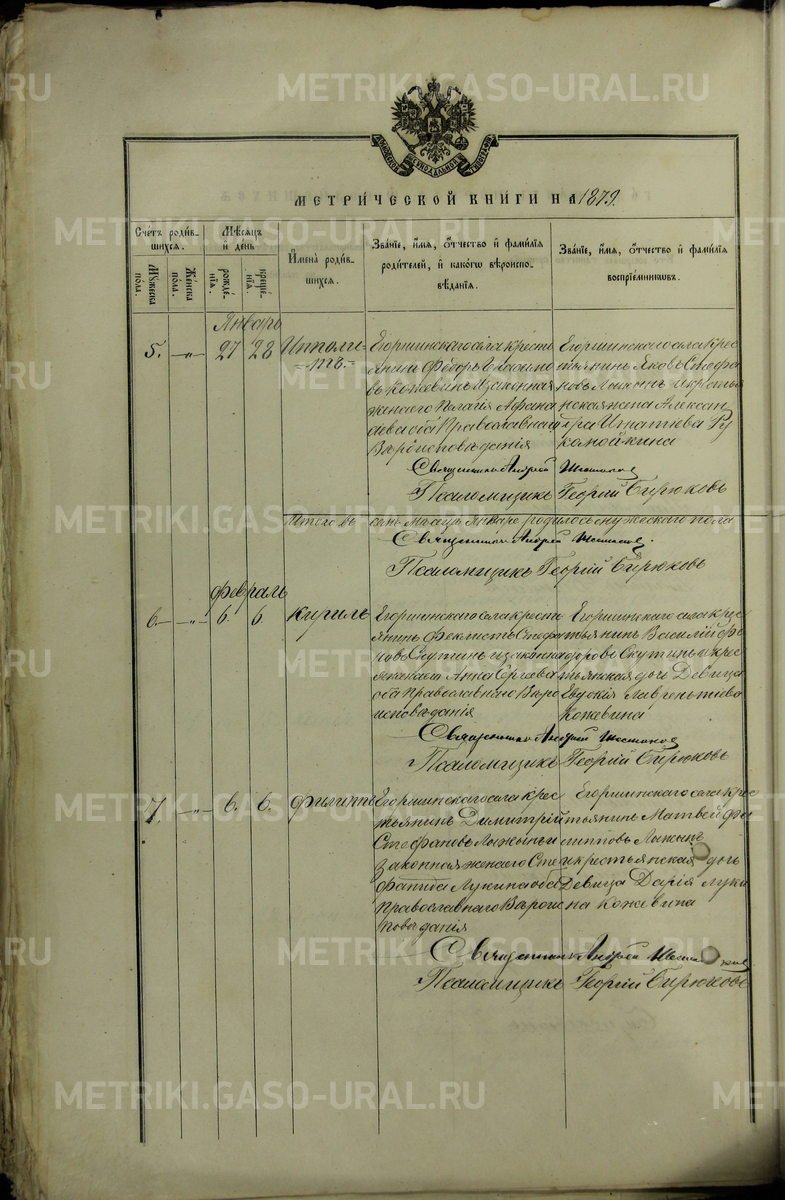 METRIKI.GASO-URAL.RU
МЕТРИ́ЧЕСКОЙ КНИ́ГИ НА 1879.
Сче́тъ роди́вшихся.
Мѣ́сяцъ и҆ де́нь
И҆мена̀ роди́вшихся.
Зва́нїе, и҆́мя, ѻ҆́тчество и҆ фами́лїя родителей, и҆ како́гѡ вѣроисповѣ́данїя.
Зва́нїе, и҆́мя, ѻ҆́тчество и҆ фами́лїя воспрїе́мниковъ.
Мꙋ́жеска по́ла.
Же́нска по́ла.
рожде́нїѧ.
креще́нїѧ.
Январь
5. -"- 27 28 Ипполи-
-тъ.-
Егоршинскаго села кресть
янинъ Ѳедоръ
въ Кожевинъ и законная
жена его Пелагія Афана
сьева оба Православнаго
Вѣроисповѣданія
Егоршинскаго села Крес
тьянинъ Яковъ Стефа
новъ Лыжинъ и кресть
янская жена Алексан
дра Игнатіева Ру
комойкина
Священникъ Андрей Шестаковъ
Псаломщикъ Георгій Бирюковъ
Итого въ семъ мѣсяцѣ Январѣ родилось мужескаго пола
Священникъ Андрей Шестаковъ.
Псаломщикъ Георгій Бирюковъ
Февраль
6.- -"- 6. 6. Кирилъ
Егоршинскаго села кресть
янинъ Феклистъ Стефа
новъ Скутинъ и законна
я жена его Анна Сергѣева
оба Православнаго Вѣро
исповѣданія
Егоршинскаго села крес
тьянинъ Василій Фе
доровъ Скутинъ и крес
тьянская дочь Девица
Евдокія Лаврентьева
Кожевина
Священникъ Андрей Шестаковъ
Псаломщикъ Георгій Бирюковъ
7. -"- 6. 6. Филиппъ
Егоршинскаго села крес
тьянинъ Димитрій
Стефановъ Лыжинъ и
законная жена его Сте
фанида Лукина оба
Православнаго Вѣроис
повѣданія
Егоршинскаго села крес
тьянинъ Матвей Фи
липповъ Лыжинъ
и крестьянская дочь
Девица Дарія Луки
на Кожевина
Священникъ Андрей Шестаковъ
Псаломщикъ Георгій Бирюковъ